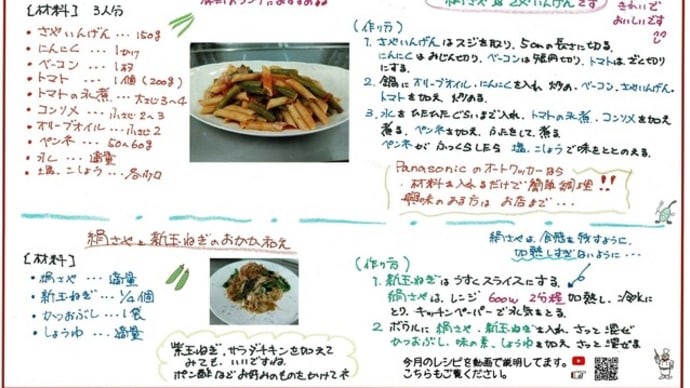 絹さや は 2メいんげんです
きれいで
おいしいです
【材料】 3人分
• さやいんげん … 150g
• にんにく … 1かけ
• ベーコン … 1枚
• トマト … 1個 (200g)
• トマトの水煮 … 大さじ3〜4
• コンソメ … 小さじ2〜3
• オリーブオイル … 小さじ2
• ペンネ … 50〜60g
• 水 … 適量
• 塩、こしょう … 各少々
(作り方)
1. さやいんげんはスジを取り、5cmの長さに切る。
にんにくはみじん切り、ベーコンは短冊切り、トマトはざく切り
にする。
2. 鍋にオリーブオイル・にんにくを入れ 炒め、ベーコン、さやいんげん・
トマトを加え 炒める。
3. 水をひたひたぐらいまで入れ、トマトの水煮、コンソメを加え
煮る。ペンネを加え、ふたをして、煮る
ペンネが ふっくらしたら 塩、こしょうで味をととのえる。
Panasonicのオートクッカーなら
材料を入れるだけで簡単調理!!
興味のある方は お店まで…
絹さやと新玉ねぎのおかか和え
絹さやは、食感を残すように、
加熱しすぎないように…
【材料】
• 絹さや … 適量
• 新玉ねぎ … 1/2個
• かつおぶし … 1袋
• しょうゆ … 適量
(作り方)
1. 新玉ねぎはうすくスライスにする。
絹さやは、レンジ 600w 2分程 加熱し、冷水に
とり、キッチンペーパーで水気をとる。
2. ボウルに 絹さや・新玉ねぎを入れ、さっと混ぜ
かつおぶし、味の素、しょうゆを加え さっと混ぜる
紫玉ねぎ、サラダチキンを加えて
みても、いいですね
ポン酢などお好みのものをかけてネ
今月のレシピを動画で説明してます。
こちらもご覧ください。